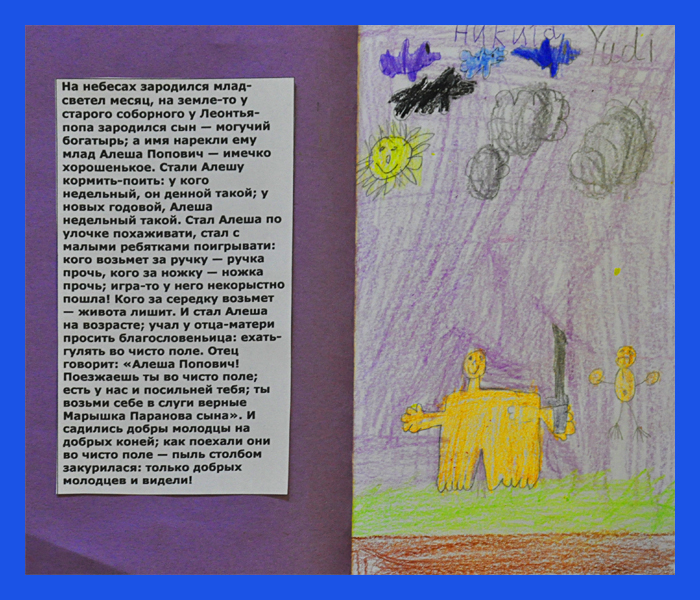 На небесах зародился млад-
светел месяц, на земле-то у
старого соборного у Леонтья-
попа зародился сын — могучий
богатырь; а имя нарекли ему
млад Алеша Попович — имечко
хорошенькое. Стали Алешу
кормить-поить: у кого
недельный, он денной такой; у
новых годовой, Алеша
недельный такой. Стал Алеша по
улочке похаживати, стал с
малыми ребятками поигрывати:
кого возьмет за ручку — ручка
прочь, кого за ножку — ножка
прочь; игра-то у него некорыстно
пошла! Кого за середку возьмет
— живота лишит. И стал Алеша
на возрасте; учал у отца-матери
просить благословеньица: ехать-
гулять во чисто поле. Отец
говорит: «Алеша Попович!
Поезжаешь ты во чисто поле;
есть у нас и посильней тебя; ты
возьми себе в слуги верные
Марышка Паранова сына». И
садились добры молодцы на
добрых коней; как поехали они
во чисто поле — пыль столбом
закурилася: только добрых
молодцев и видели!
Никита Yudi